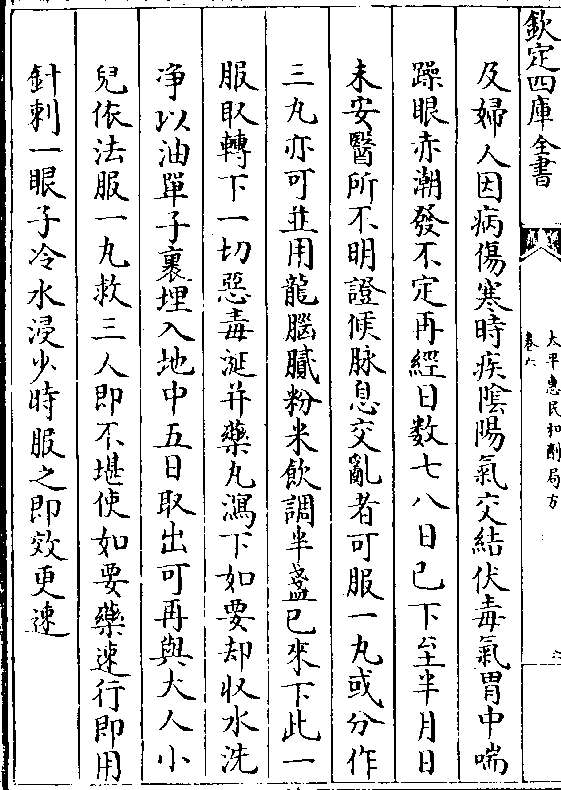 欽定四庫全書
太平惠民和劑局方
卷六
六
及婦人因病傷寒時疾陰陽氣交結伏毒氣胃中喘
躁眼赤潮發不定再經日數七八日已下至半月日
未安醫所不明證候脉息交亂者可服一丸或分作
三丸亦可並用龍腦膩粉米飲調半盞已來下此一
服臥轉下一切惡毒涎并藥丸瀉下如要却收水洗
净以油單子裹埋入地中五日取出可再與大人小
兒依法服一丸救三人即不堪使如要藥速行即用
針刺一眼子冷水浸少時服之即效更速